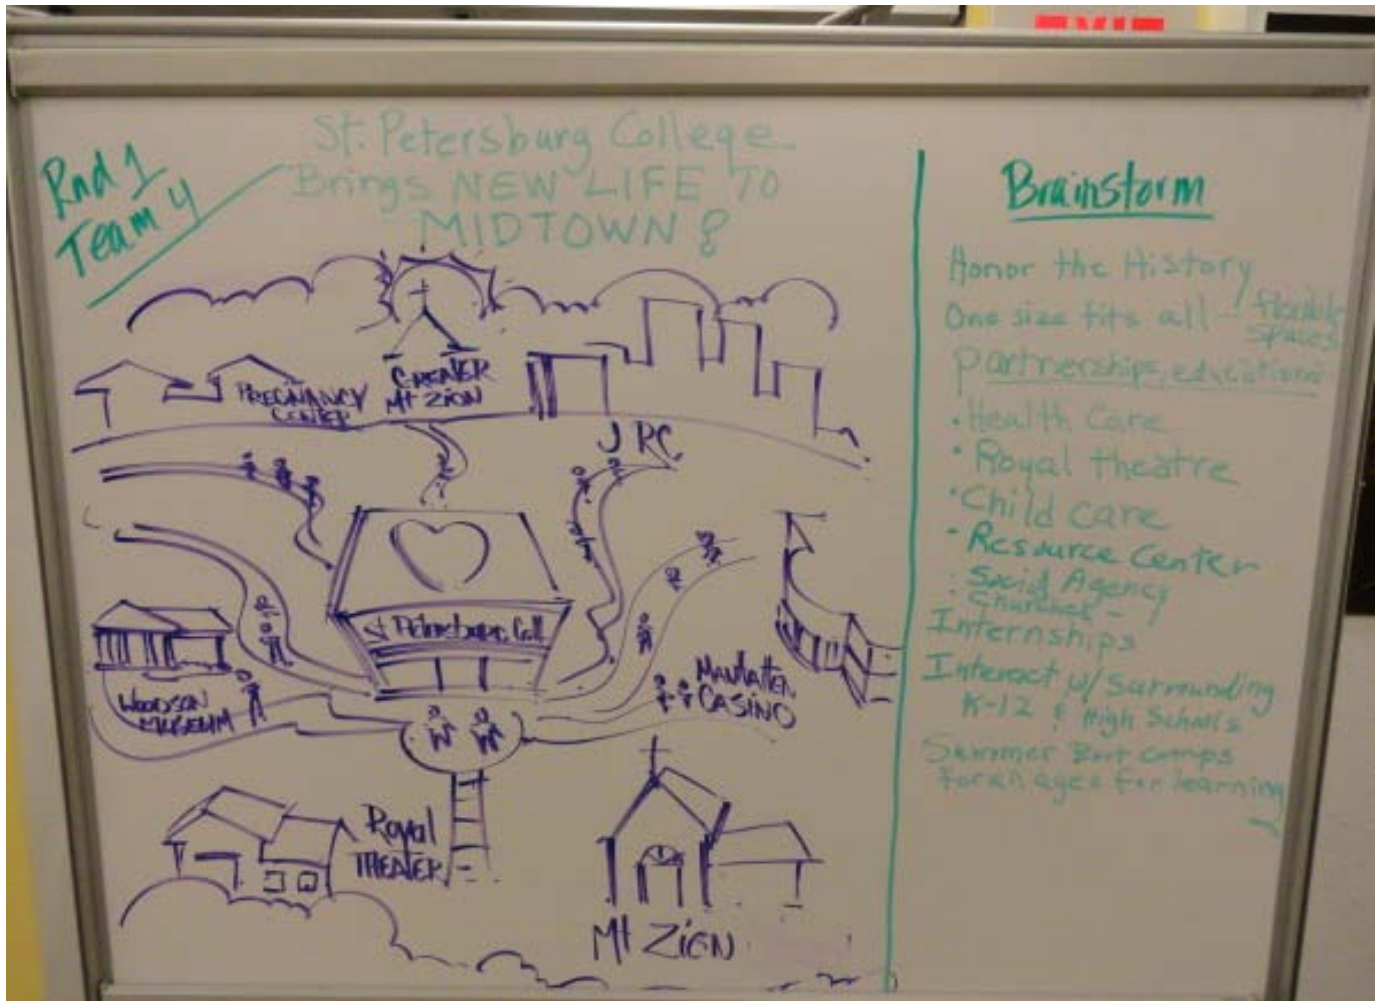 Rnd 1
Team 4
St. Petersburg College
Brings NEW LIFE TO
MIDTOWN !
PREGNANCY
CENTER
GREATER
Mt ZION
J RC
St Petersburg Coll
WOODSON
MUSEUM
Manhatten
CASINO
Royal
THEATER
Mt ZiON
Brainstorm
Honor the History
One size fits all - flexible
spaces
partnerships, educational
• Health Care
• Royal theatre
• Child care
• Resource Center
• Social Agency
• Churches -
Internships
Interact w/ surrounding
K-12 & High Schools
Summer Boot camps
for all ages for learning